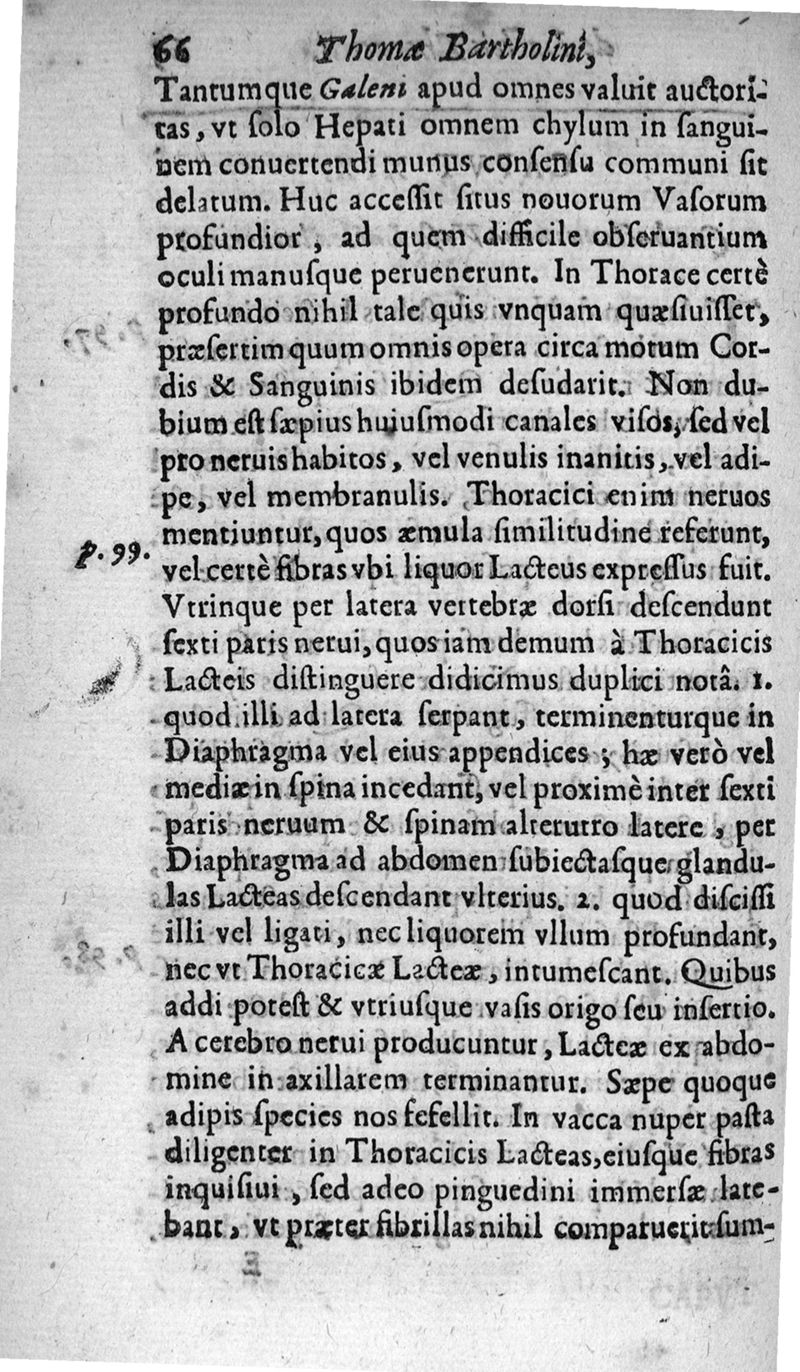 66 Thomæ Bartholini,
Tantumque Galeni apud omnes valuit auctori-
tas, vt ſolo Hepati omnem chylum in ſangui-
nem conuertendi munus conſenſu communi ſit
delatum. Huc acceſſit ſitus nouorum Vaſorum
profundior, ad quem difficile obſeruantium
oculi manuſque peruenerunt. In Thorace certè
profundo nihil tale quis vnquam quæſiuiſſet,
præſertim quum omnis opera circa motum Cor-
dis & Sanguinis ibidem deſudarit. Non du-
bium eſt ſæpius hujuſmodi canales viſos, ſed vel
pro neruis habitos, vel venulis inanitis, vel adi-
pe, vel membranulis. Thoracici enim neruos
mentiuntur, quos æmula ſimilitudine referunt,
p. 99.
vel certè fibras vbi liquor Lacteus expreſſus fuit.
Vtrinque per latera vertebræ dorſi deſcendunt
ſexti paris nerui, quos iam demum à Thoracicis
Lacteis diſtinguere didicimus duplici notâ. 1.
quod illi ad latera ſerpant, terminenturque in
Diaphragma vel eius appendices; hæ verò vel
mediæ in ſpina incedant, vel proximè inter ſexti
paris neruum & ſpinam alterutro latere, per
Diaphragma ad abdomen ſubiectaſque glandu-
las Lacteas deſcendant vlterius. 2. quod diſciſſi
illi vel ligati, nec liquorem vllum profundant,
nec vt Thoracicæ Lacteæ, intumeſcant. Quibus
addi poteſt & vtriuſque vaſis origo ſeu inſertio.
A cerebro nerui producuntur, Lacteæ ex abdo-
mine in axillarem terminantur. Sæpe quoque
adipis ſpecies nos fefellit. In vacca nuper paſta
diligenter in Thoracicis Lacteas, eiuſque fibras
inquiſiui, ſed adeo pinguedini immerſæ late-
bant, vt præter fibrillas nihil comparuerit ſum-
E